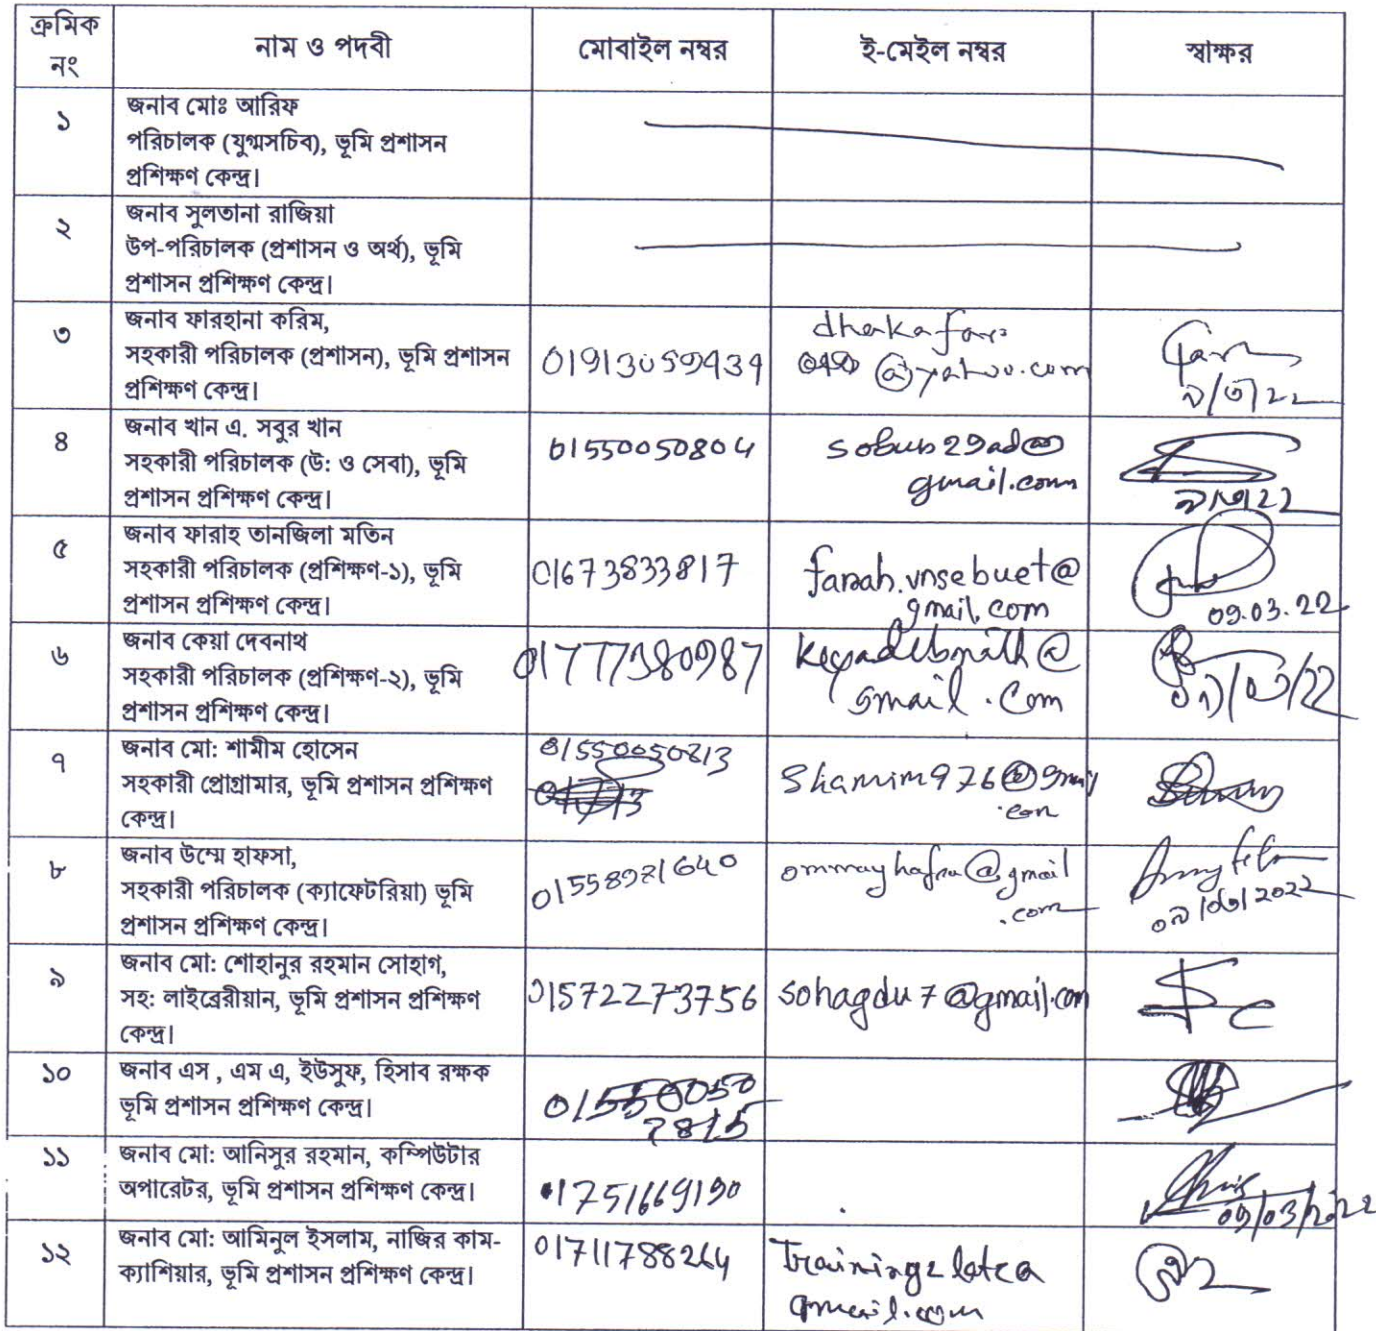 ক্রমিক নং নাম ও পদবী মোবাইল নম্বর ই-মেইল নম্বর স্বাক্ষর
১ জনাব মোঃ আরিফ
পরিচালক (যুগ্মসচিব), ভূমি প্রশাসন
প্রশিক্ষণ কেন্দ্র।
২ জনাব সুলতানা রাজিয়া
উপ-পরিচালক (প্রশাসন ও অর্থ), ভূমি
প্রশাসন প্রশিক্ষণ কেন্দ্র।
৩ জনাব ফারহানা করিম,
সহকারী পরিচালক (প্রশাসন), ভূমি প্রশাসন
প্রশিক্ষণ কেন্দ্র।
01913059439
@yahoo.com
৯/৩/22
৪ জনাব খান এ. সবুর খান
সহকারী পরিচালক (উ: ও সেবা), ভূমি
প্রশাসন প্রশিক্ষণ কেন্দ্র।
01550050804
sobub29ad@
gmail.com
৯/৩/22
৫ জনাব ফারাহ তানজিলা মতিন
সহকারী পরিচালক (প্রশিক্ষণ-১), ভূমি
প্রশাসন প্রশিক্ষণ কেন্দ্র।
01673833817
farah.vnsebuet@
gmail.com
09.03.22
৬ জনাব কেয়া দেবনাথ
সহকারী পরিচালক (প্রশিক্ষণ-২), ভূমি
প্রশাসন প্রশিক্ষণ কেন্দ্র।
01777380987
keyadebnath@
gmail.com
০৯/০৩/22
৭ জনাব মো: শামীম হোসেন
সহকারী প্রোগ্রামার, ভূমি প্রশাসন প্রশিক্ষণ
কেন্দ্র।
01550050813
shamim976@gmail
.com
৮ জনাব উম্মে হাফসা,
সহকারী পরিচালক (ক্যাফেটরিয়া) ভূমি
প্রশাসন প্রশিক্ষণ কেন্দ্র।
01558921640
ommayhafsa@gmail
.com
০৯/০৩/2022
৯ জনাব মো: শোহানুর রহমান সোহাগ,
সহ: লাইব্রেরীয়ান, ভূমি প্রশাসন প্রশিক্ষণ
কেন্দ্র।
01572273756
sohagdu7@gmail.com
১০ জনাব এস , এম এ, ইউসুফ, হিসাব রক্ষক
ভূমি প্রশাসন প্রশিক্ষণ কেন্দ্র।
১১ জনাব মো: আনিসুর রহমান, কম্পিউটার
অপারেটর, ভূমি প্রশাসন প্রশিক্ষণ কেন্দ্র।
01751669190
09/03/2022
১২ জনাব মো: আমিনুল ইসলাম, নাজির কাম-
ক্যাশিয়ার, ভূমি প্রশাসন প্রশিক্ষণ কেন্দ্র।
01711788264
gmail.com